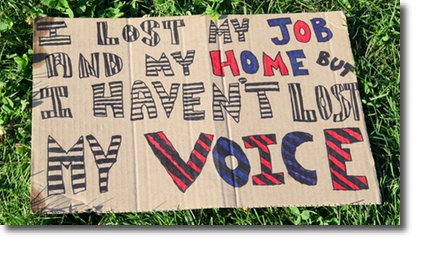 I LOST MY JOB
AND MY HOME BUT
I HAVEN'T LOST
MY VOICE